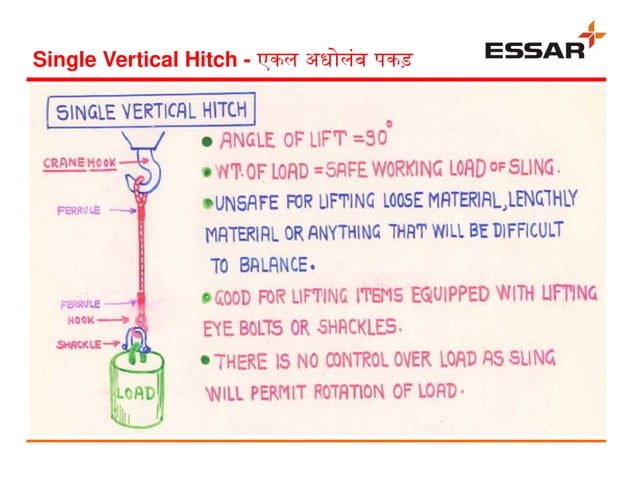 Single Vertical Hitch - एकल अधोलंब पकड़
ESSAR
SINGLE VERTICAL HITCH
CRANE HOOK
FERRULE
FERRULE
HOOK
SHACKLE
LOAD
ANGLE OF LIFT = 90°
WT. OF LOAD = SAFE WORKING LOAD OF SLING.
UNSAFE FOR LIFTING LOOSE MATERIAL, LENGTHLY
MATERIAL OR ANYTHING THAT WILL BE DIFFICULT
TO BALANCE.
GOOD FOR LIFTING ITEMS EQUIPPED WITH LIFTING
EYE BOLTS OR SHACKLES.
THERE IS NO CONTROL OVER LOAD AS SLING
WILL PERMIT ROTATION OF LOAD.